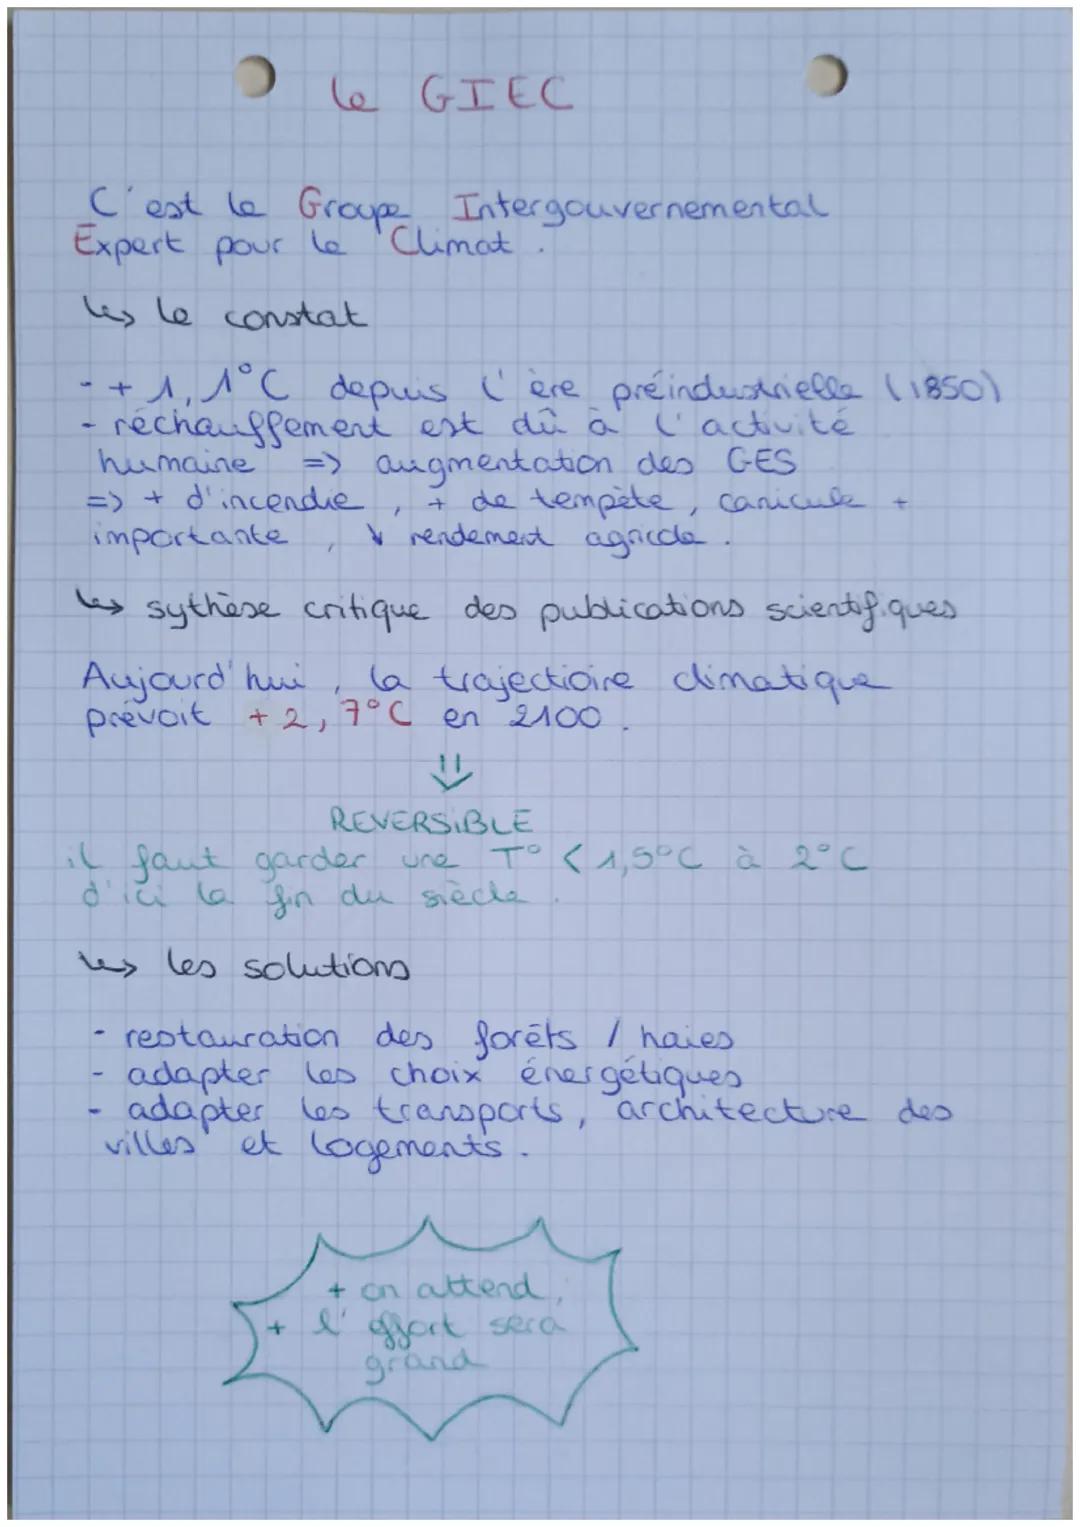 le GIEC
C'est le Groupe Intergouvernemental
Expert pour le Climat.
↳ le constat
- + 1,1°C depuis l'ère préindustrielle (1850)
- réchauffement est dû à l'activité
humaine => augmentation des GES
=> + d'incendie, + de tempête, canicule +
importante, ↓ rendement agricole.
↳ sythèse critique des publications scientifiques
Aujourd'hui, la trajectioire climatique
prévoit +2,7°C en 2100.
⇓
REVERSIBLE
il faut garder une T° < 1,5°C à 2°C
d'ici la fin du siècle.
↳ les solutions
- restauration des forêts / haies
- adapter les choix énergétiques
- adapter les transports, architecture des
villes et logements.
+ on attend,
+ l'effort sera
grand